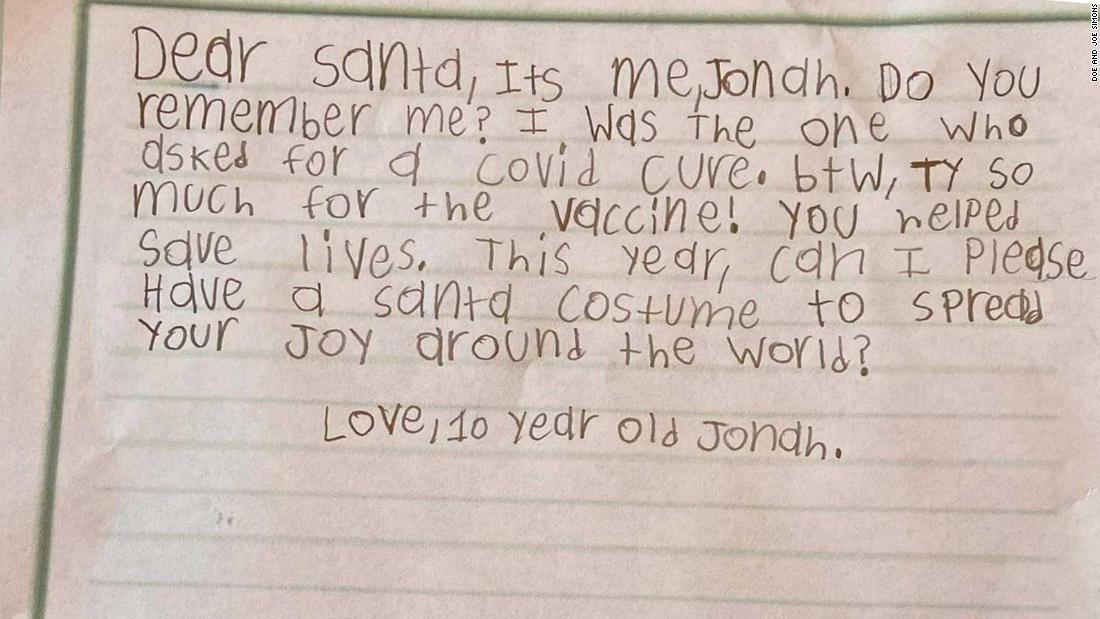 Dear Santa, Its me, Jonah. Do you
remember me? I was the one who
asked for a covid cure. btw, TY so
much for the vaccine! You helped
save lives. This year, can I please
Have a santa costume to spread
your Joy around the world?
Love, 10 year old Jonah.
DOE AND JOE SIMONS